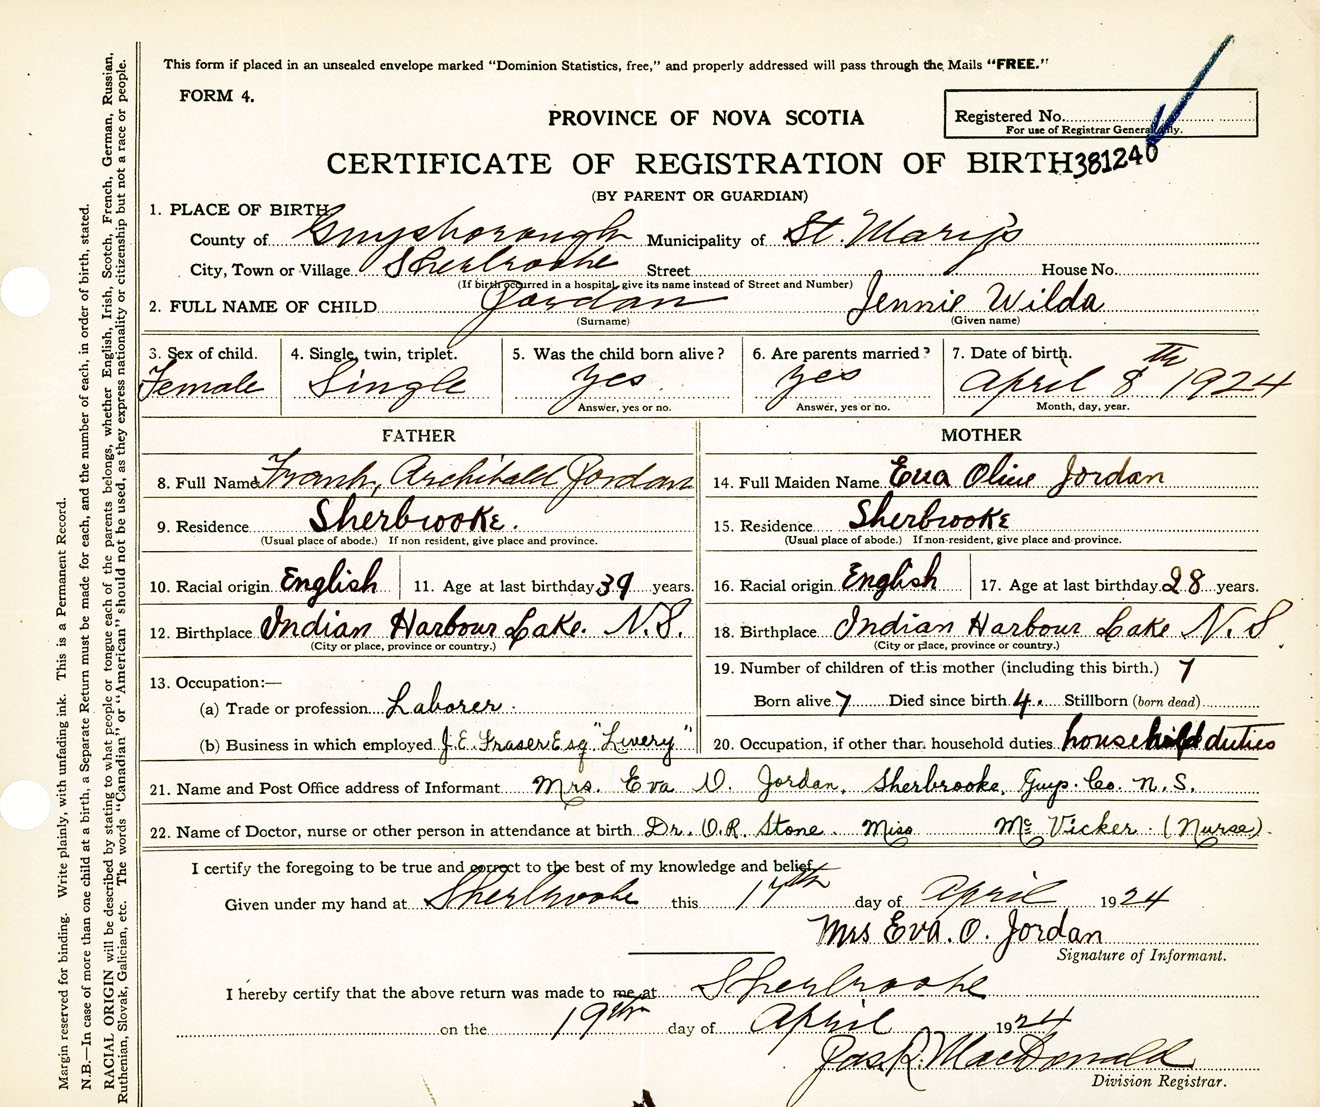 This form if placed in an unsealed envelope marked "Dominion Statistics, free," and properly addressed will pass through the Mails "FREE."
FORM 4.
PROVINCE OF NOVA SCOTIA
Registered No.
For use of Registrar General only.
CERTIFICATE OF REGISTRATION OF BIRTH 381240
(BY PARENT OR GUARDIAN)
1. PLACE OF BIRTH
County of Guysborough Municipality of St. Mary's
City, Town or Village Sherbrooke Street House No.
(If birth occurred in a hospital, give its name instead of Street and Number)
2. FULL NAME OF CHILD Jordan Jennie Wilda
(Surname) (Given name)
3. Sex of child. 4. Single, twin, triplet. 5. Was the child born alive? 6. Are parents married? 7. Date of birth.
Female Single yes yes April 8th 1924
Answer, yes or no. Answer, yes or no. Month, day, year.
FATHER MOTHER
8. Full Name Frank, Archibald Jordan
9. Residence Sherbrooke.
(Usual place of abode.) If non resident, give place and province.
10. Racial origin English 11. Age at last birthday 39 years.
12. Birthplace Indian Harbour Lake. N.S.
(City or place, province or country.)
13. Occupation:—
(a) Trade or profession Laborer.
(b) Business in which employed J.E. Fraser Esq "Livery"
14. Full Maiden Name Eva Olive Jordan
15. Residence Sherbrooke
(Usual place of abode.) If non-resident, give place and province.
16. Racial origin English 17. Age at last birthday 28 years.
18. Birthplace Indian Harbour Lake N.S.
(City or place, province or country.)
19. Number of children of this mother (including this birth.) 7
Born alive 7 Died since birth 4. Stillborn (born dead)
20. Occupation, if other than household duties household duties
21. Name and Post Office address of Informant Mrs. Eva O. Jordan, Sherbrooke, Guys. Co. N.S.
22. Name of Doctor, nurse or other person in attendance at birth Dr. O.R. Stone. Miss Mc Vicker (Nurse).
I certify the foregoing to be true and correct to the best of my knowledge and belief.
Given under my hand at Sherbrooke this 17th day of April 1924
Mrs Eva. O. Jordan
Signature of Informant.
I hereby certify that the above return was made to me at Sherbrooke
on the 19th day of April 1924
Jas R. MacDonald
Division Registrar.
Margin reserved for binding. Write plainly, with unfading ink. This is a Permanent Record.
N.B.—In case of more than one child at a birth, a Separate Return must be made for each, and the number of each, in order of birth, stated.
RACIAL ORIGIN will be described by stating to what people or tongue each of the parents belongs, whether English, Irish, Scotch, French, German, Russian,
Ruthenian, Slovak, Galician, etc. The words "Canadian" or "American" should not be used, as they express nationality or citizenship but not a race or people.